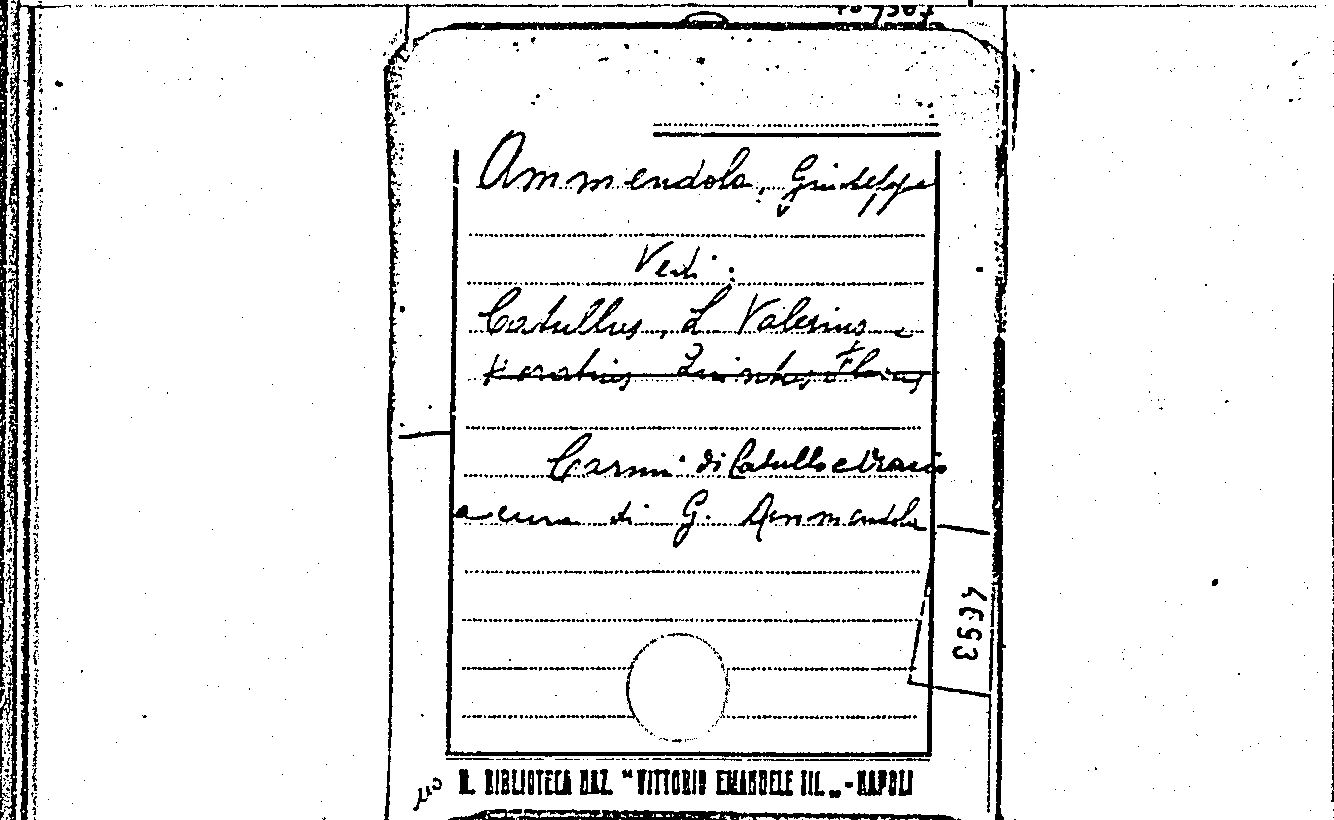 Ammendola, Giuseppe
Vedi:
Catullus, L Valerius e
Horatius Quintus Flaccus
Carmi di Catullo e Orazio
a cura di G. Ammendola
4693
R. BIBLIOTECA NAZ. "VITTORIO EMANUELE III. „ - NAPOLI